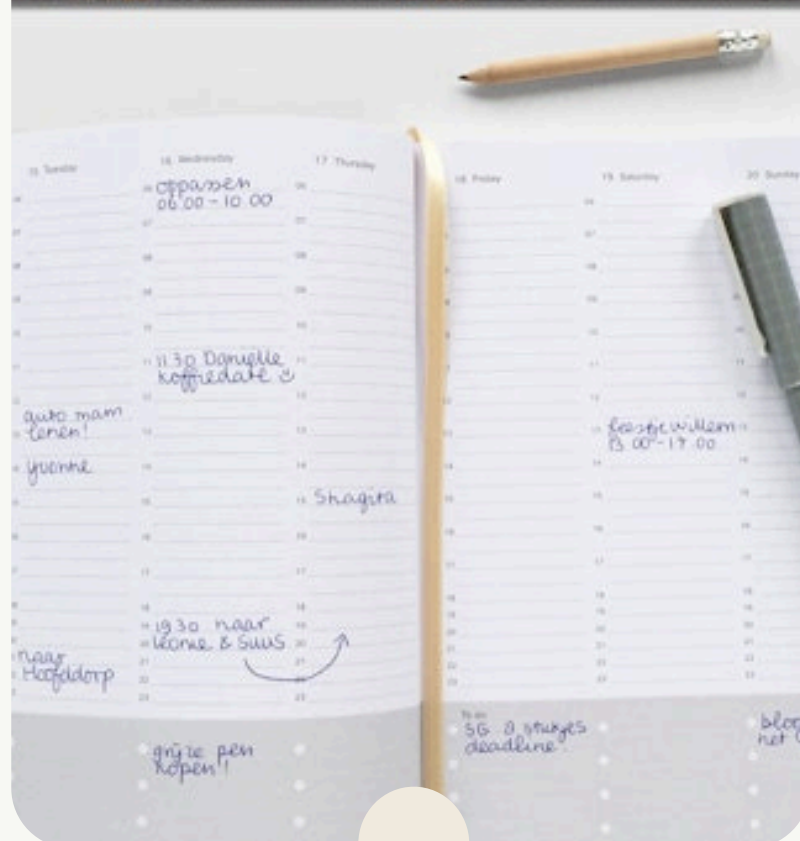 15 Tuesday
auto mam
lenen!
Yvonne
naar
Hoofddorp
16 Wednesday
oppassen
06.00 - 10.00
11.30 Danielle
koffiedate
19.30 naar
Leonie & Suus
grijze pen
kopen!!
17 Thursday
Shagita
18 Friday
To do
SG 2 stukjes
deadline!
19 Saturday
feestje Willem
13.00 - 17.00
20 Sunday
blog
het